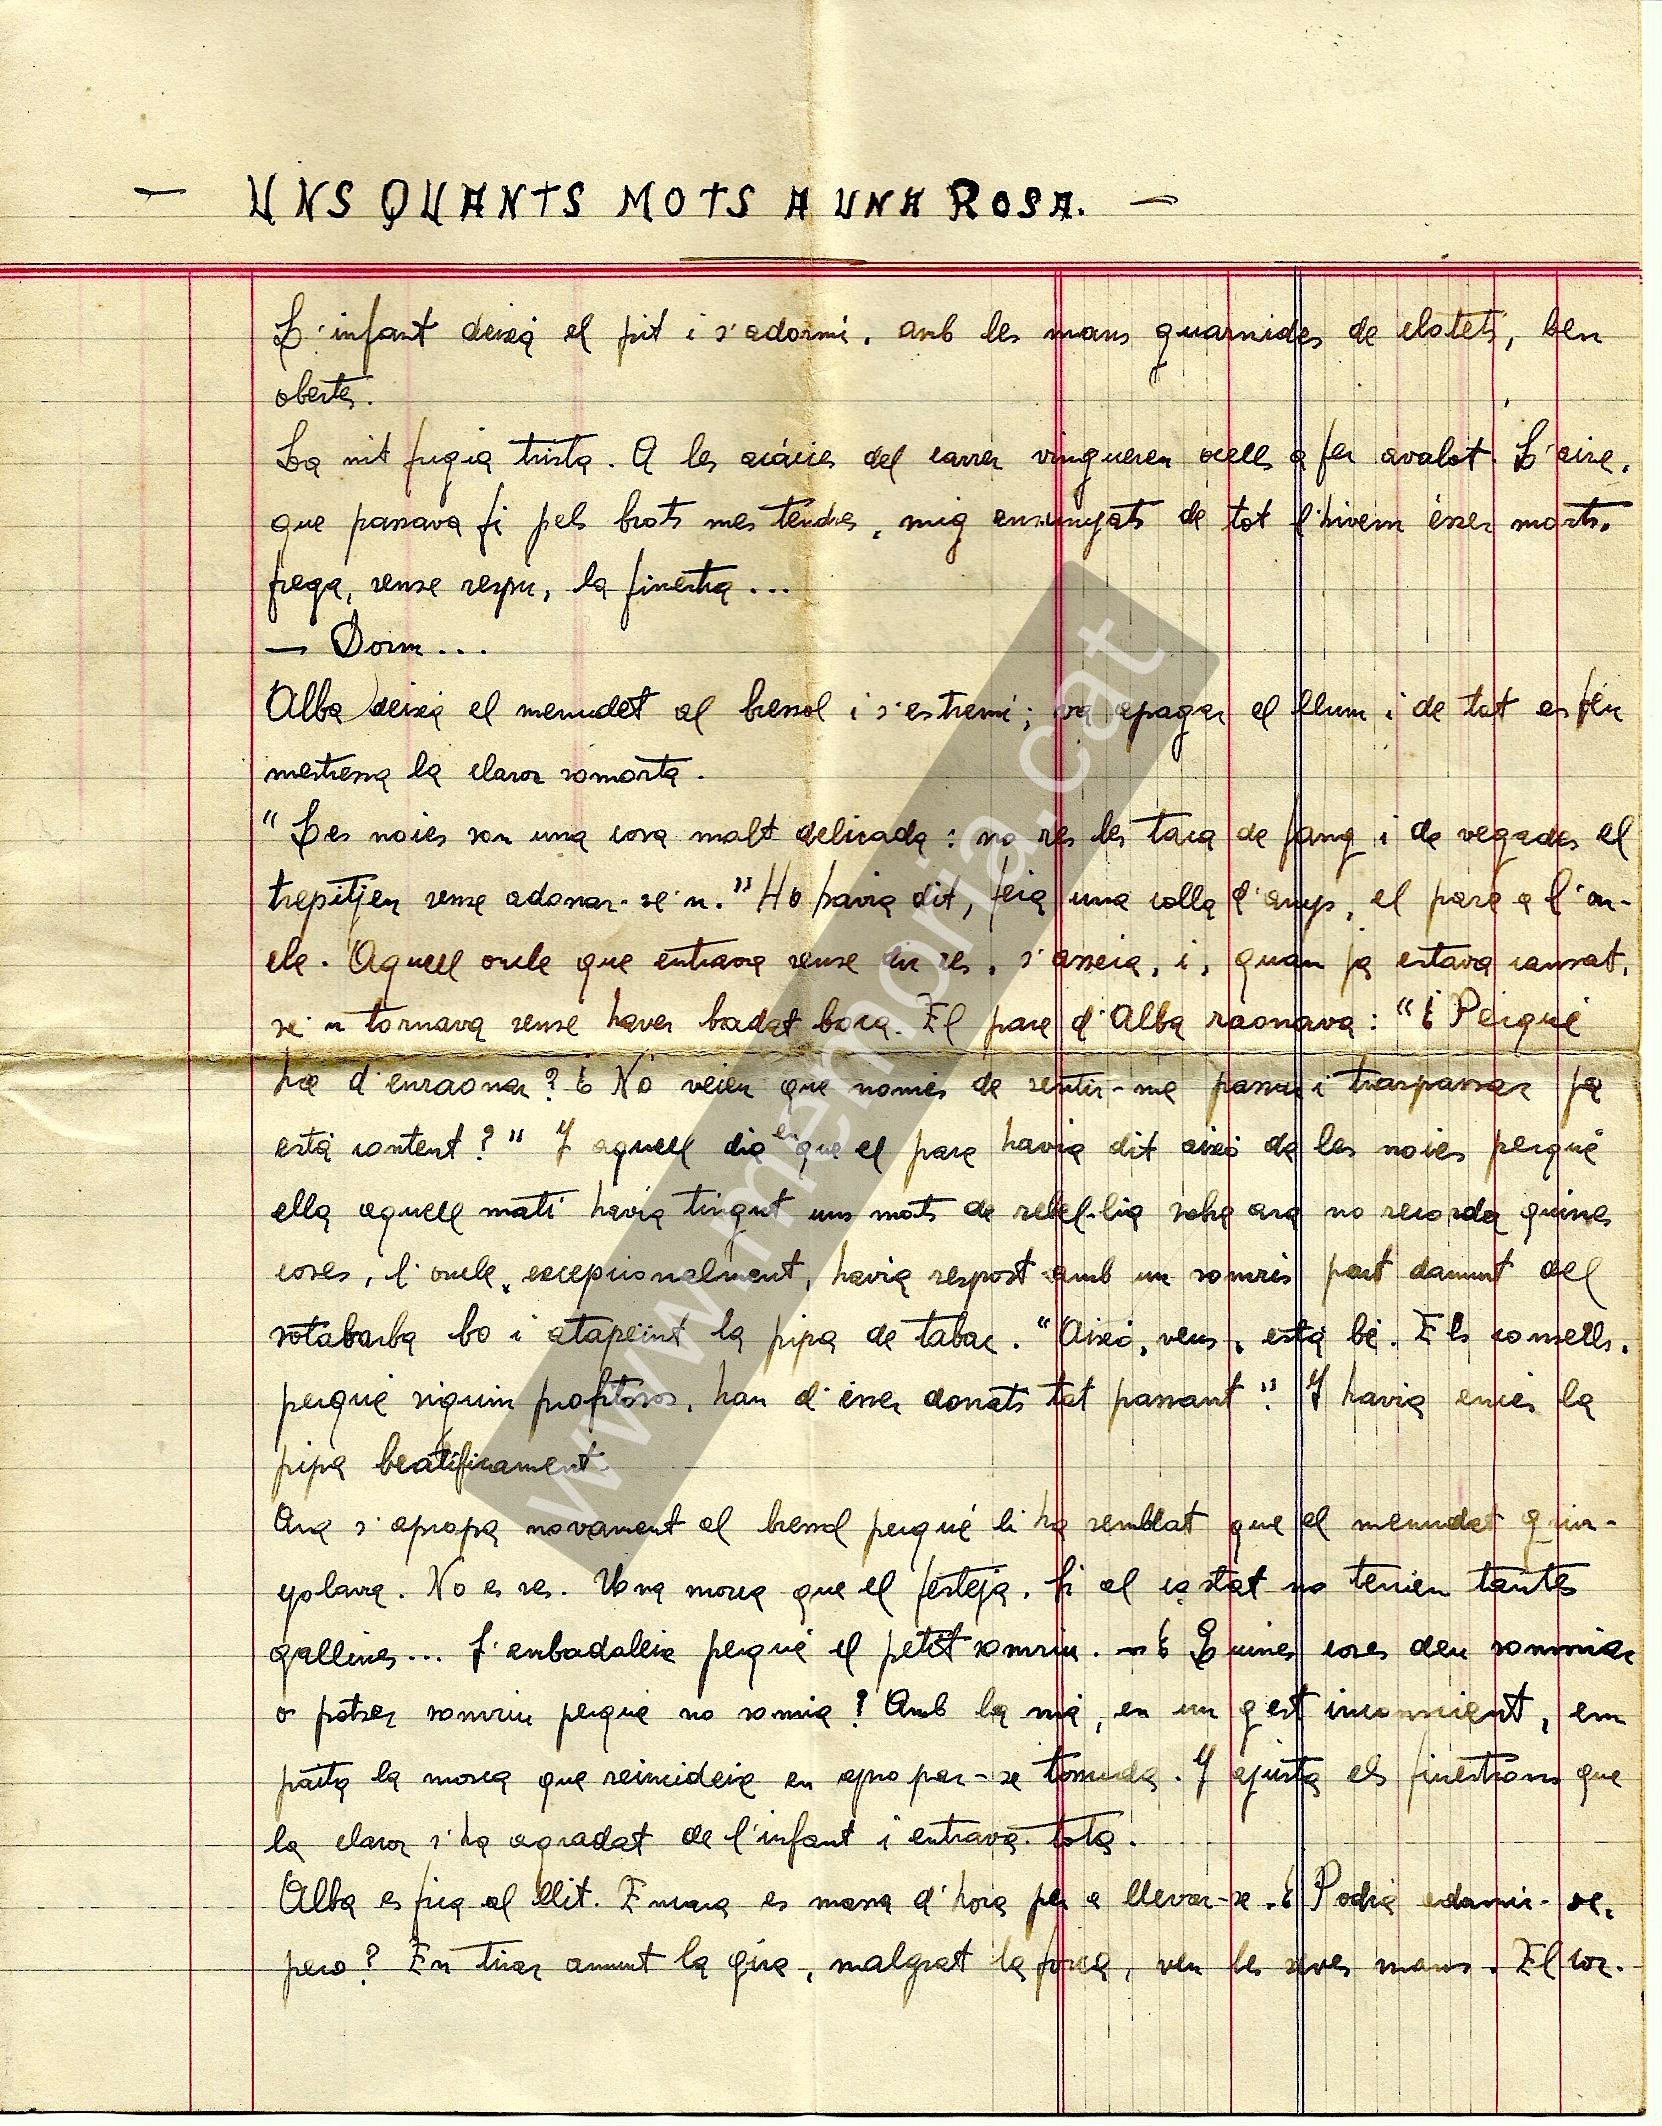 — UNS QUANTS MOTS A UNA ROSA. —
L'infant deixà el pit i s'adormí, amb les mans guarnides de clotets, ben
obertes.
La nit fugia trista. A les acàcies del carrer vingueren ocells a fer avalot. L'aire,
que passava fi pels brots mes tendres, mig enxunyats de tot l'hivern ésser morts,
frega, sense respir, la finestra...
— Dorm...
Alba deixà el menudet al bressol i s'estremí; va apagar el llum i de tot es féu
mestressa la claror somorta.
"Les noies son una cosa molt delicada: no res les taca de fang i de vegades el
trepitjen sense adonar-se'n." Ho havia dit, feia una colla d'anys, el pare a l'on-
cle. Aquell oncle que entrava sense dir res, s'asseia, i, quan ja estava cansat,
se'n tornava sense haver badat boca. El pare d'Alba raonava: "¿Perquè
ha d'enraonar? ¿No veieu que només de sentir-me passar i traspassar ja
està content?" I aquell dia en que el pare havia dit això de les noies perquè
ella aquell matí havia tingut uns mots de rebel·lia sobre ara no recorda quines
coses, l'oncle, excepcionalment, havia respost amb un somris part damunt del
sotabarba bo i atapeïnt la pipa de tabac. "Això, veus, està bé. Els consells,
perquè siguin profitosos, han d'ésser donats tot passant". I havia encès la
pipa beatíficament.
Ara s'apropa novament al bressol perquè li ha semblat que el menudet guin-
yolava. No es res. Una mosca que el festeja. Si al costat no tenien tantes
gallines... S'embadaleix perquè el petit somriu. — ¿Quines coses deu somniar
o potser somriu perquè no somia? Amb la mà, en un gest inconscient, em
paita la mosca que reincideix en apropar-se tossuda. I ajusta els finestrons que
la claror s'ha agradat de l'infant i entrava tota.
Alba es fica al llit. Encara es massa d'hora per a llevar-se. ¿Podrà adormir-se,
pero? En tirar amunt la gira, malgrat la força, veu les seves mans. El cor.
www.memoria.cat